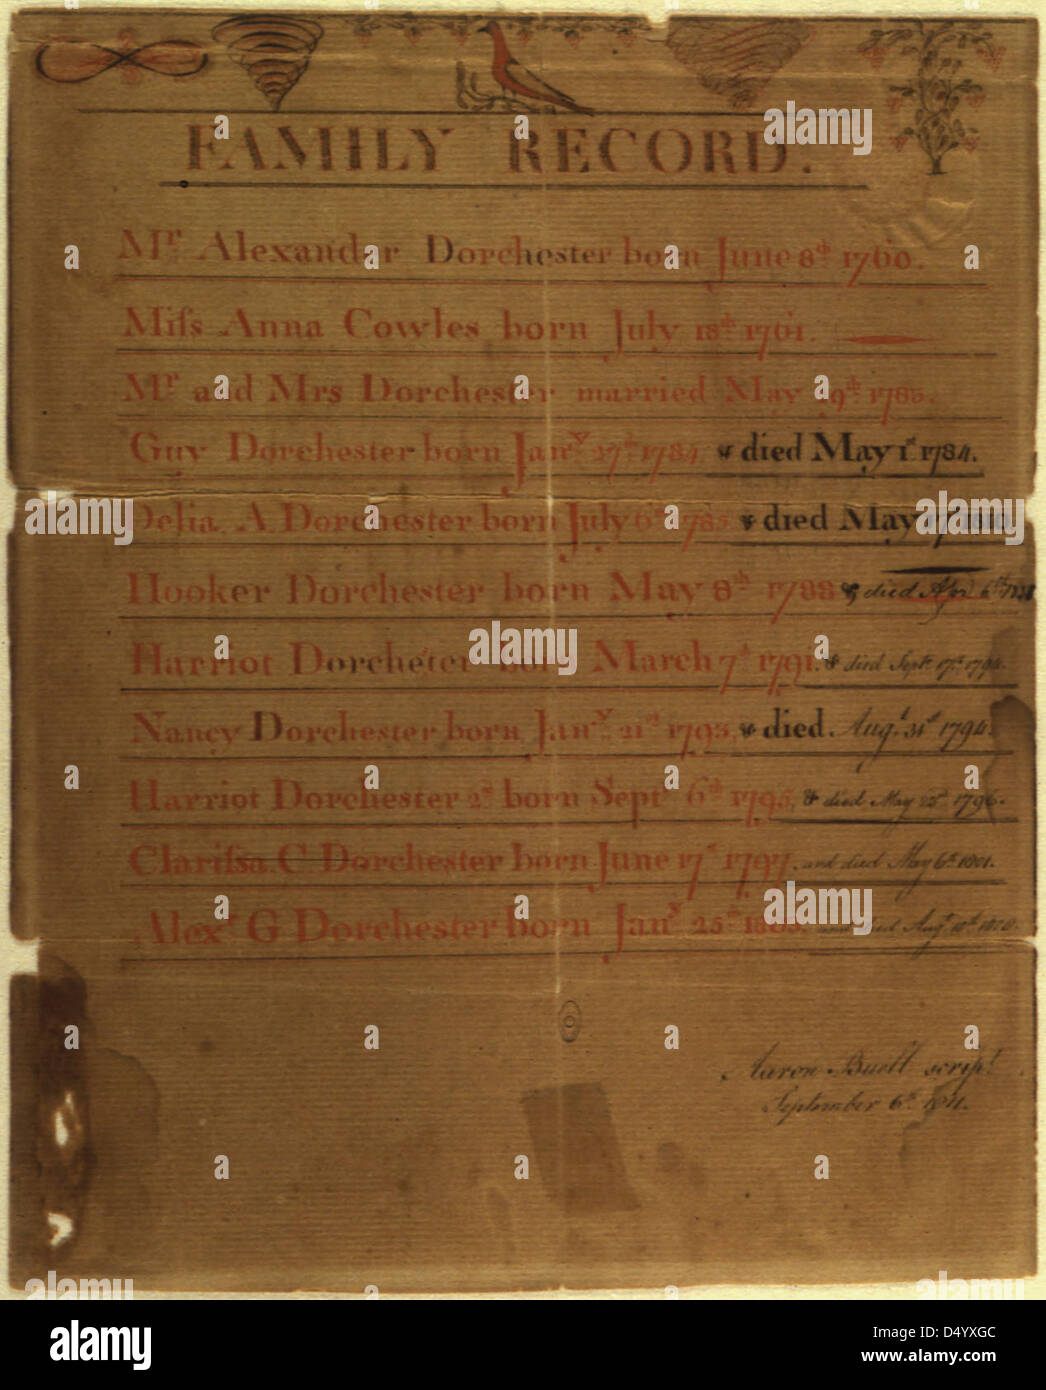 FAMILY RECORD.
Mr. Alexander Dorchester born June 8th 1760.
Miſs Anna Cowles born July 18th 1761.
Mr and Mrs Dorchester married May 1785.
Guy Dorchester born Jany 27th 1784, & died May 1st 1784.
Delia A Dorchester born July 6th 1785, & died May
Hooker Dorchester born May 8th 1788 & died Apr 6th
Harriot Dorchester born March 7th 1791. & died Sept 17th 1794.
Nancy Dorchester born Jany 21st 1793, & died. Augt 31st 1794.
Harriot Dorchester 2d born Sept 6th 1795, & died May 25th 1796.
Clariſsa C Dorchester born June 17th 1797, and died May 6th 1801.
Alexr G Dorchester born Jany 25th 1803. and died Augt
Aaron Buell script
September 6th 1811.
alamy
Image ID: D4YXGC
www.alamy.com